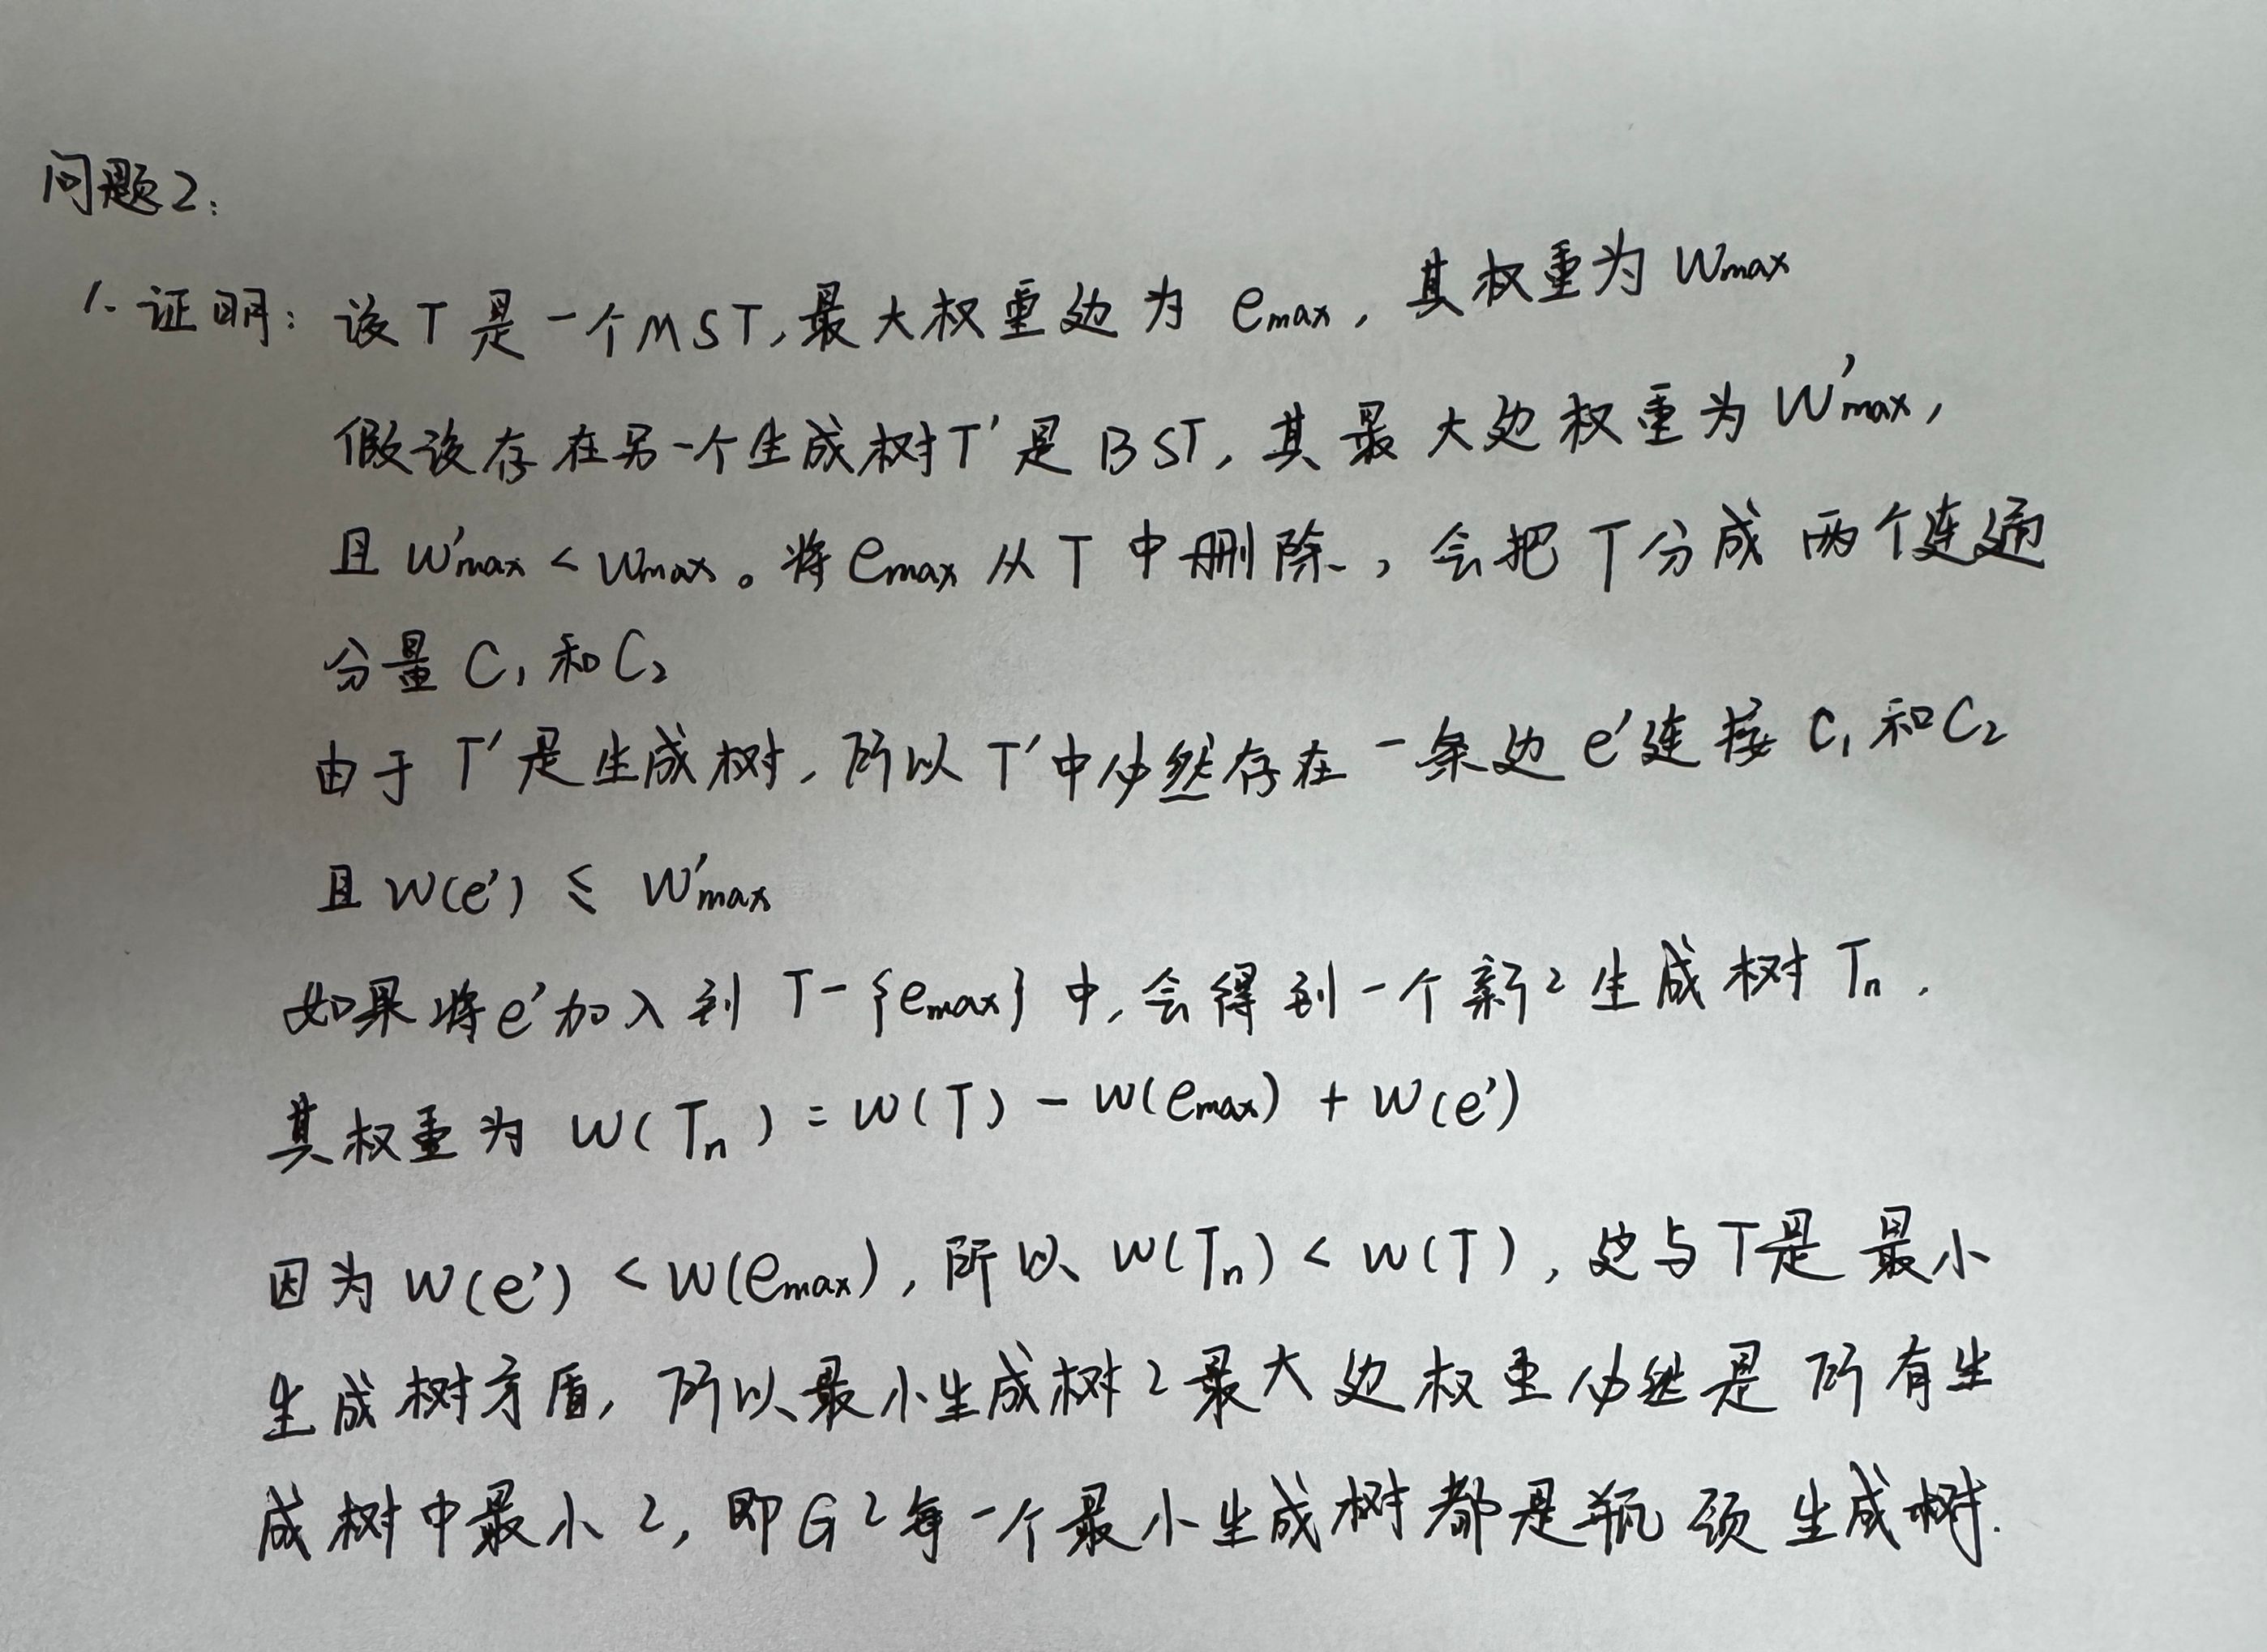 问题2:
1. 证明: 设T是一个MST,最大权重边为 emax, 其权重为 Wmax
假设存在另一个生成树T'是BST, 其最大边权重为W'max,
且 W'max < Wmax。将 emax 从 T 中删除, 会把 T分成 两个连通
分量 C₁ 和 C₂
由于 T'是生成树, 所以 T'中必然存在一条边 e'连接 C₁ 和 C₂
且 W(e') ≤ W'max
如果将e'加入到 T-{emax} 中, 会得到一个新2生成树 Tn.
其权重为 W(Tn) = W(T) - W(emax) + W(e')
因为 W(e') < W(emax), 所以 W(Tn) < W(T), 这与T是最小
生成树矛盾, 所以最小生成树2最大边权重必然是所有生
成树中最小2, 即G2每一个最小生成树都是瓶颈生成树.